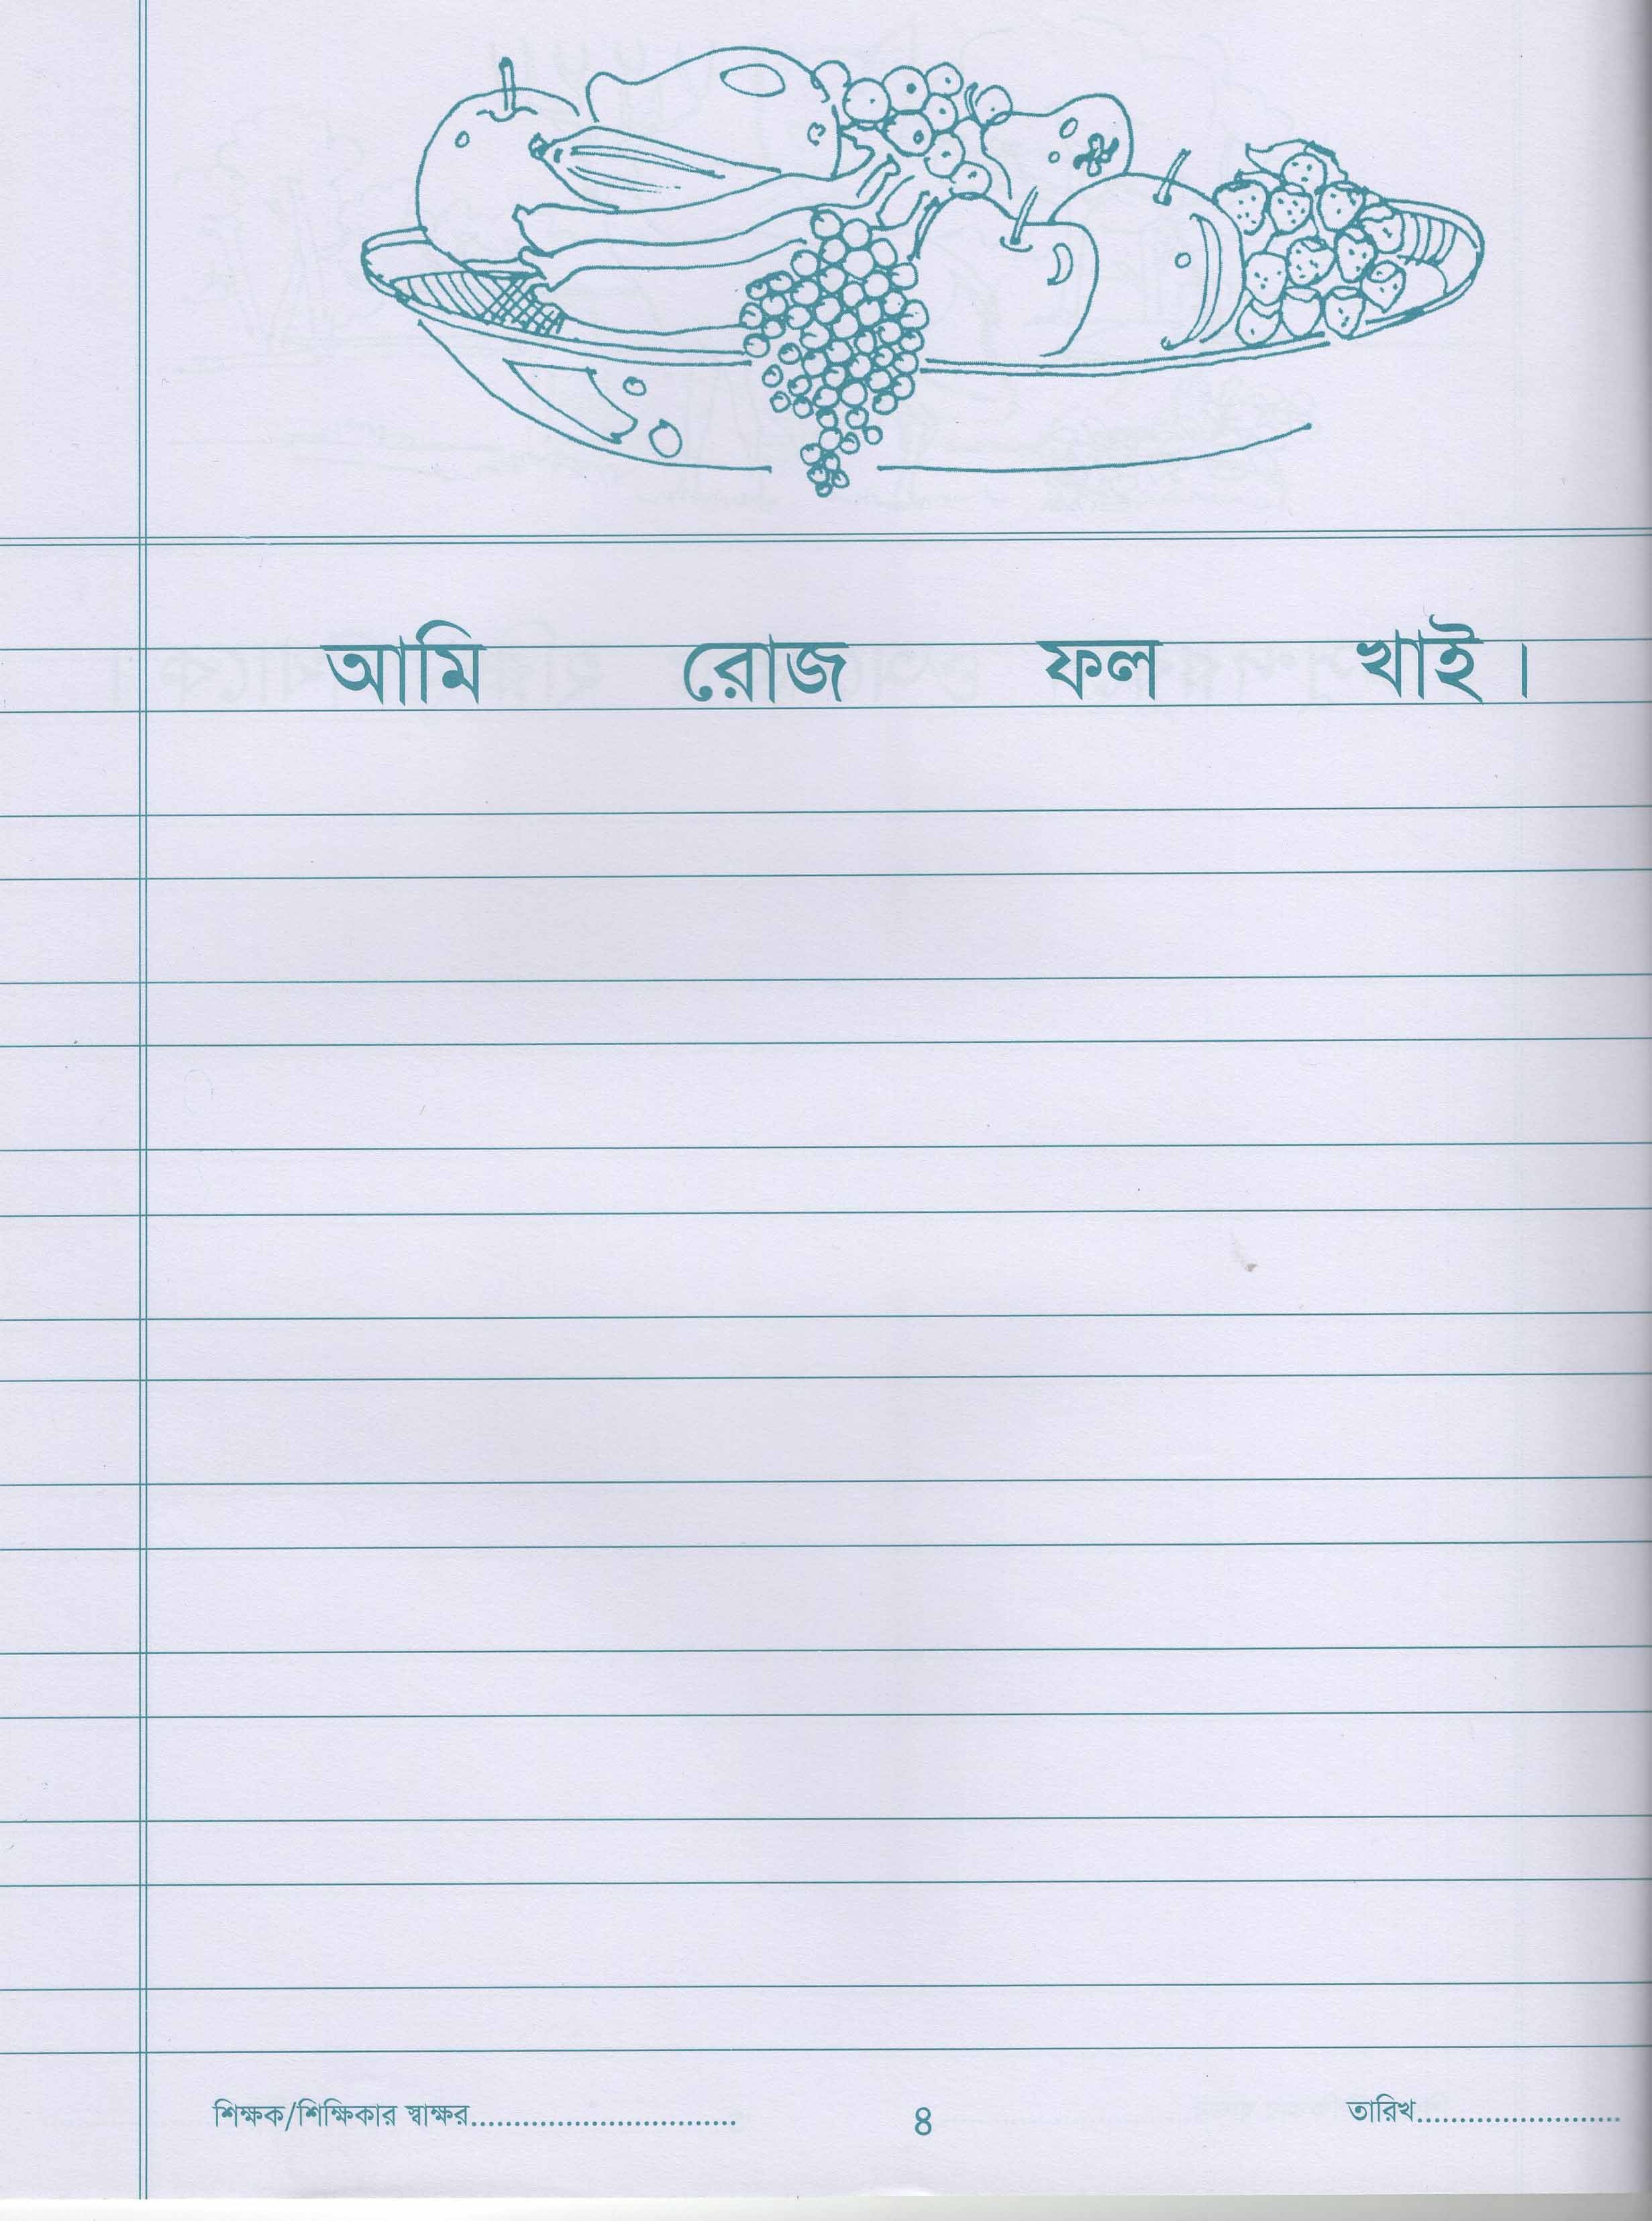 আমি রোজ ফল খাই।
শিক্ষক/শিক্ষিকার স্বাক্ষর............................. ৪ তারিখ.......................